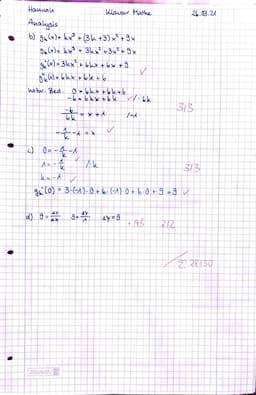 Hannah Klausur Mathe 26.03.21
Analysis
b) gₖ(x) = kx³ + (3k+3)x² + 9x
gₖ(x) = kx³ + 3kx² + 3x² + 9x
gₖ'(x) = 3kx² + 6kx + 6x + 9
gₖ''(x) = 6kx + 6k + 6 ✓
notw. Bed. 0 = 6kx + 6k + 6
-6 = 6kx + 6k ✓ /: 6k
3/3
-6/6k = x + 1 /-1
-1/k - 1 = x ✓
c) 0 = -1/k - 1
1 = -1/k /·k
3/3
k = -1 ✓
gₖ'(0) = 3·(-1)·0 + 6·(-1)·0 + 6·0 + 9 = 9 ✓
d) 9 = ΔY/ΔX 9 = ΔY/1 ΔY = 9
2/2
Σ 28/30